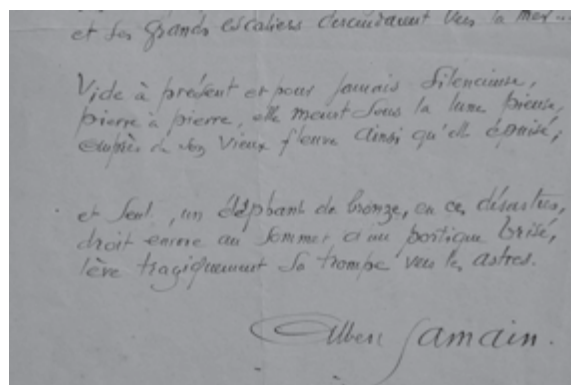 et ses grands escaliers descendant vers la mer...
Vide à présent et pour jamais silencieuse,
pierre à pierre, elle meurt sous la lune pieuse,
auprès de son vieux fleuve ainsi qu'elle épuisé,
et seul, un éléphant de bronze, en ces désastres,
droit encore au sommet d'un portique brisé,
lève tragiquement sa trompe vers les astres.
Albert Samain.